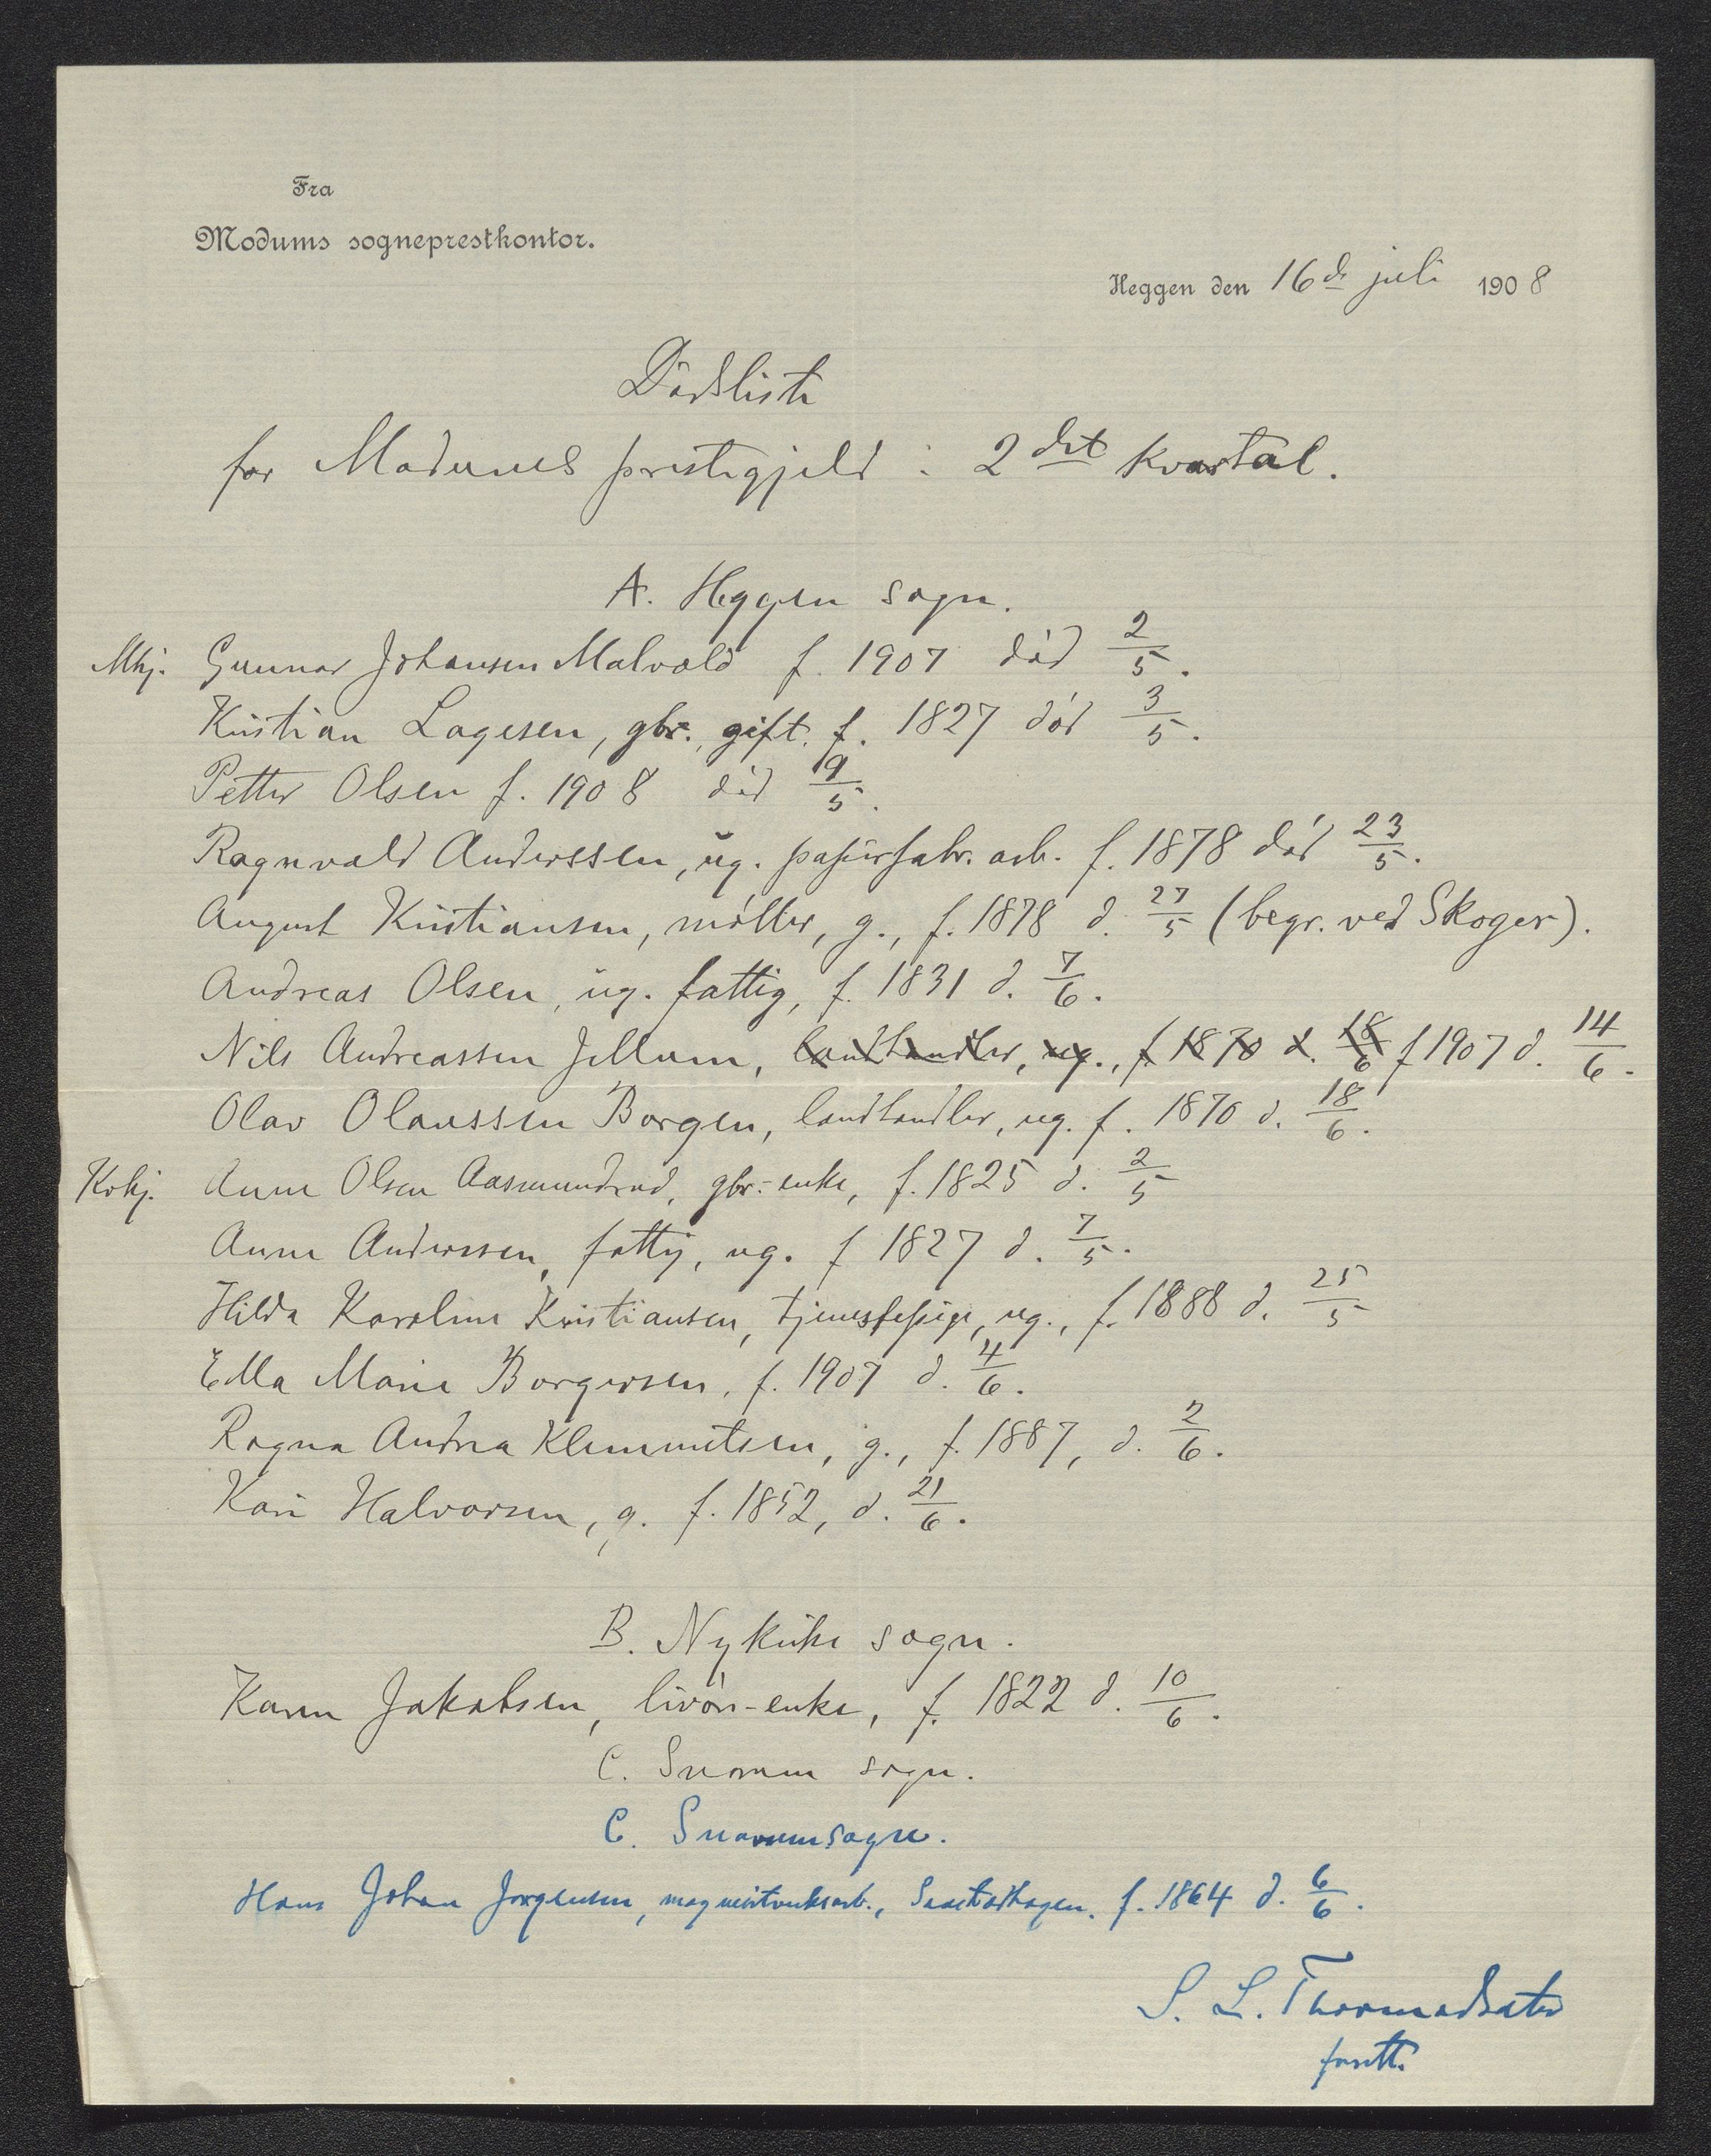 Fra
Modums sogneprestkontor.
Heggen den 16de juli 1908
Dødsliste
for Modums prestegjeld i 2det kvartal.
A. Heggen sogn.
Mkj. Gunnar Johansen Malvald f. 1907 død 2/5.
Kristian Lagesen, gbr., gift. f. 1827 død 3/5.
Petter Olsen f. 1908 død 19/5.
Ragnvald Anderssen, ug. papirfabr. arb. f. 1878 død 23/5.
August Kristiansen, møller, g., f. 1878 d. 27/5 (begr. ved Skoger).
Andreas Olsen, ug. fattig, f. 1831 d. 7/6.
Nils Andreassen Jellum, landhandler, ug., f 1870 d. 18/6 f 1907 d. 14/6.
Olav Olaussen Borgen, landhandler, ug. f. 1870 d. 18/6.
Kvkj. Anne Olsen Aasmundrud, gbr.-enke, f. 1825 d. 2/5
Anne Anderssen, fattig, ug. f 1827 d. 7/5.
Hilda Karoline Kristiansen, tjenestepige, ug., f. 1888 d. 25/5
Ella Marie Borgersen, f. 1907 d. 4/6.
Ragna Andrea Klemmetsen, g., f. 1887, d. 2/6.
Kari Halvorsen, g. f. 1852, d. 21/6.
B. Nykirke sogn.
Karen Jakobsen, livøre-enke, f. 1822 d. 10/6.
C. Snarum sogn.
C. Snarumsogn.
Hans Johan Jørgensen, magnesitverksarb., f. 1864 d. 6/6.
S. L. Thormodsæter